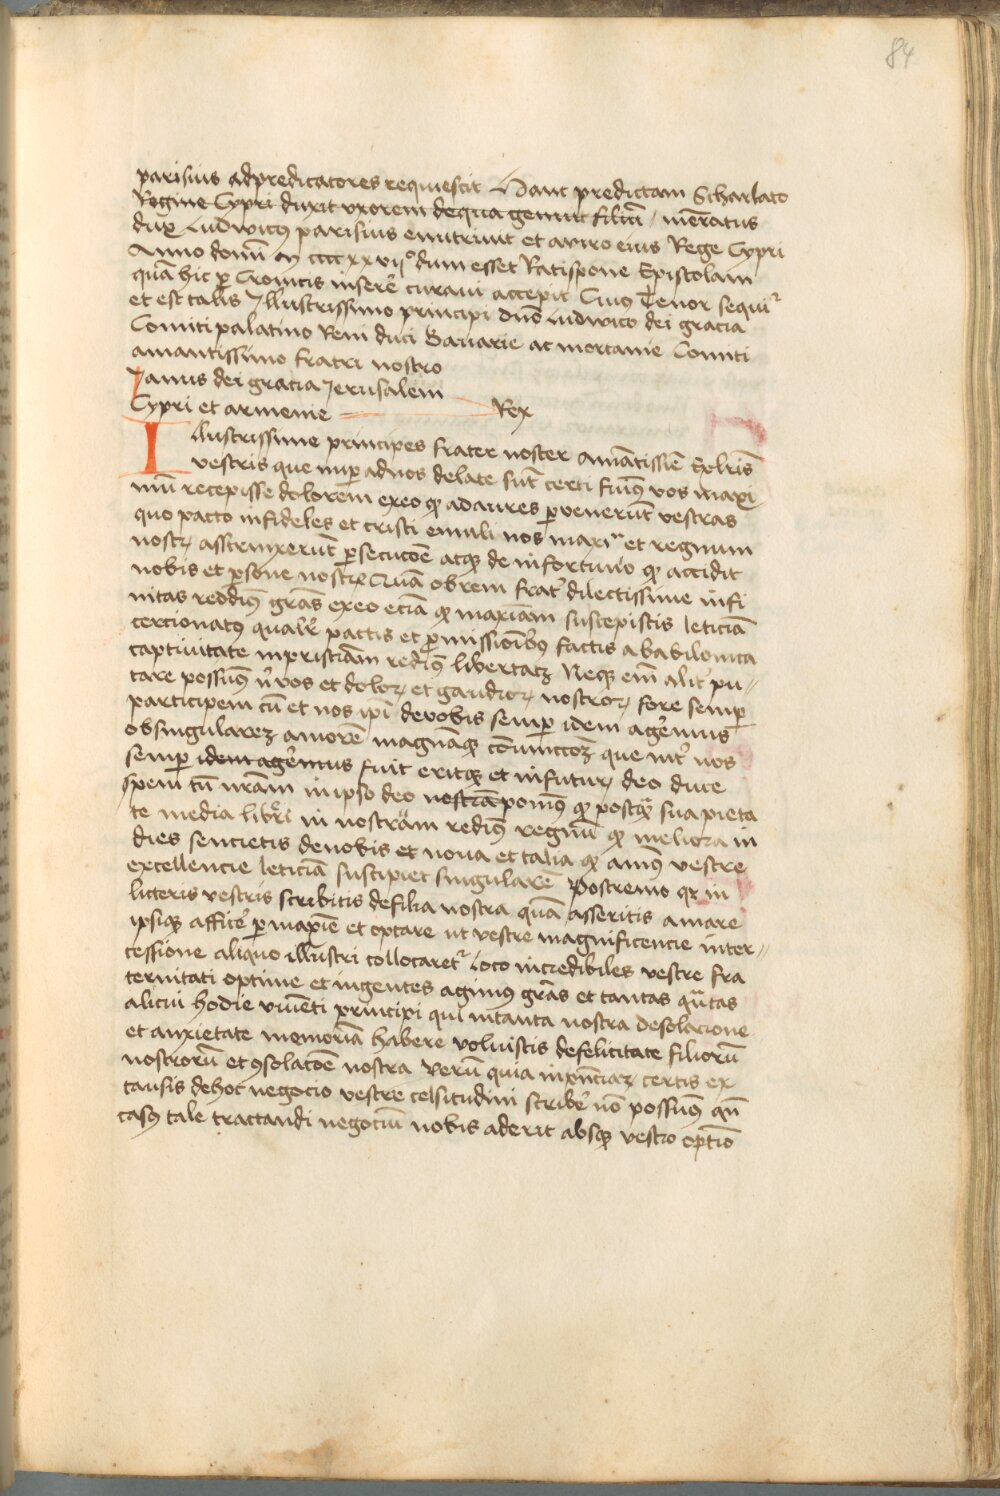 84
parisius ad predicatores requiescit Hanc predictam Scharlato
Regine Cypri duxit vxorem de qua genuit filiū / memoratus
dux Ludwicus parisius enutriuit et a viro eius Rege Cypri
Anno domī M cccc xxvijº dum esset Ratispone Epistolam
quā hic ꝑ Cronicis inserē curaui accepit Cuiꝰ Tenor sequit᷑
et est talis Jllustrissimo principi dnō Ludwico dei gracia
Comiti palatino Reni duci Bauarie ac mortanie Comiti
amantissimo fratri nostro
Janus dei gracia Jerusalem
Cypri et armenie Rex
Illustrissime principes frater noster Amātissiē Exlr̄is
vestris que nuꝑ ad nos delate sūt certi fuimꝰ vos maxi
mū recepisse dolorem ex eo qꝫ ad aures ꝑuenerūt vestras
quo pacto infideles et cristi emuli nos maxīe et regnum
nostrꝫ astrinxerūt ꝑsecucōe atqꝫ de infortunio qꝫ accidit
nobis et ꝑsone nostre Quā obrem frat᷑ dilectissime infi
nitas reddimꝰ grās ex eo eciā qꝫ maxiam suscepistis leticiā
cercionatꝰ qualr̄ pactis et ꝑmissionibꝰ factis a babilonica
captiuitate in pristinam redimꝰ libertatꝫ Neqꝫ em̄ alit᷑ pu〃
tare possumꝰ nꝰ vos et dolorꝫ et gaudiorꝫ nostrorꝫ fore semꝑ
participem cū et nos ip̄i de vobis semꝑ idem agemus
ob singularez amorē magnāqꝫ cōiunctōꝫ que int᷑ nos
semꝑ idem agemus fuit eritqꝫ et in futurꝫ deo duce
spem tn̄ nrām in ipso deo nostrā ponimꝰ qꝫ postqꝫ sua pieta
te media libr̄i in nostram redimꝰ regnū qꝫ meliora in
dies sencietis de nobis et noua et talia qꝫ animꝰ vestre
excellencie leticiā suscipiet singularē Postremo qꝛ in
litteris vestris scribitis de filia nostra quā asseritis amare
ipsiqꝫ afficē ꝑ maxīe et optare ut vestre magnificencie inter〃
cessione aliquo illustri collocaret᷑ loco incredibiles vestre fra
ternitati optime et ingentes agimꝰ grās et tantas quātas
alicui hodie viuēti principi qui in tanta nostra desolacione
et anxietate memoriā habere voluistis de felicitate filiorū
nostrorū et ꝯsolatōe nostra Verū quia in pn̄ciarꝫ certis ex
causis de hoc negocio vestre celsitudini scribē nō possumꝰ qn̄
casꝰ tale tractandi negociū nobis aderit absqꝫ vestro optīo